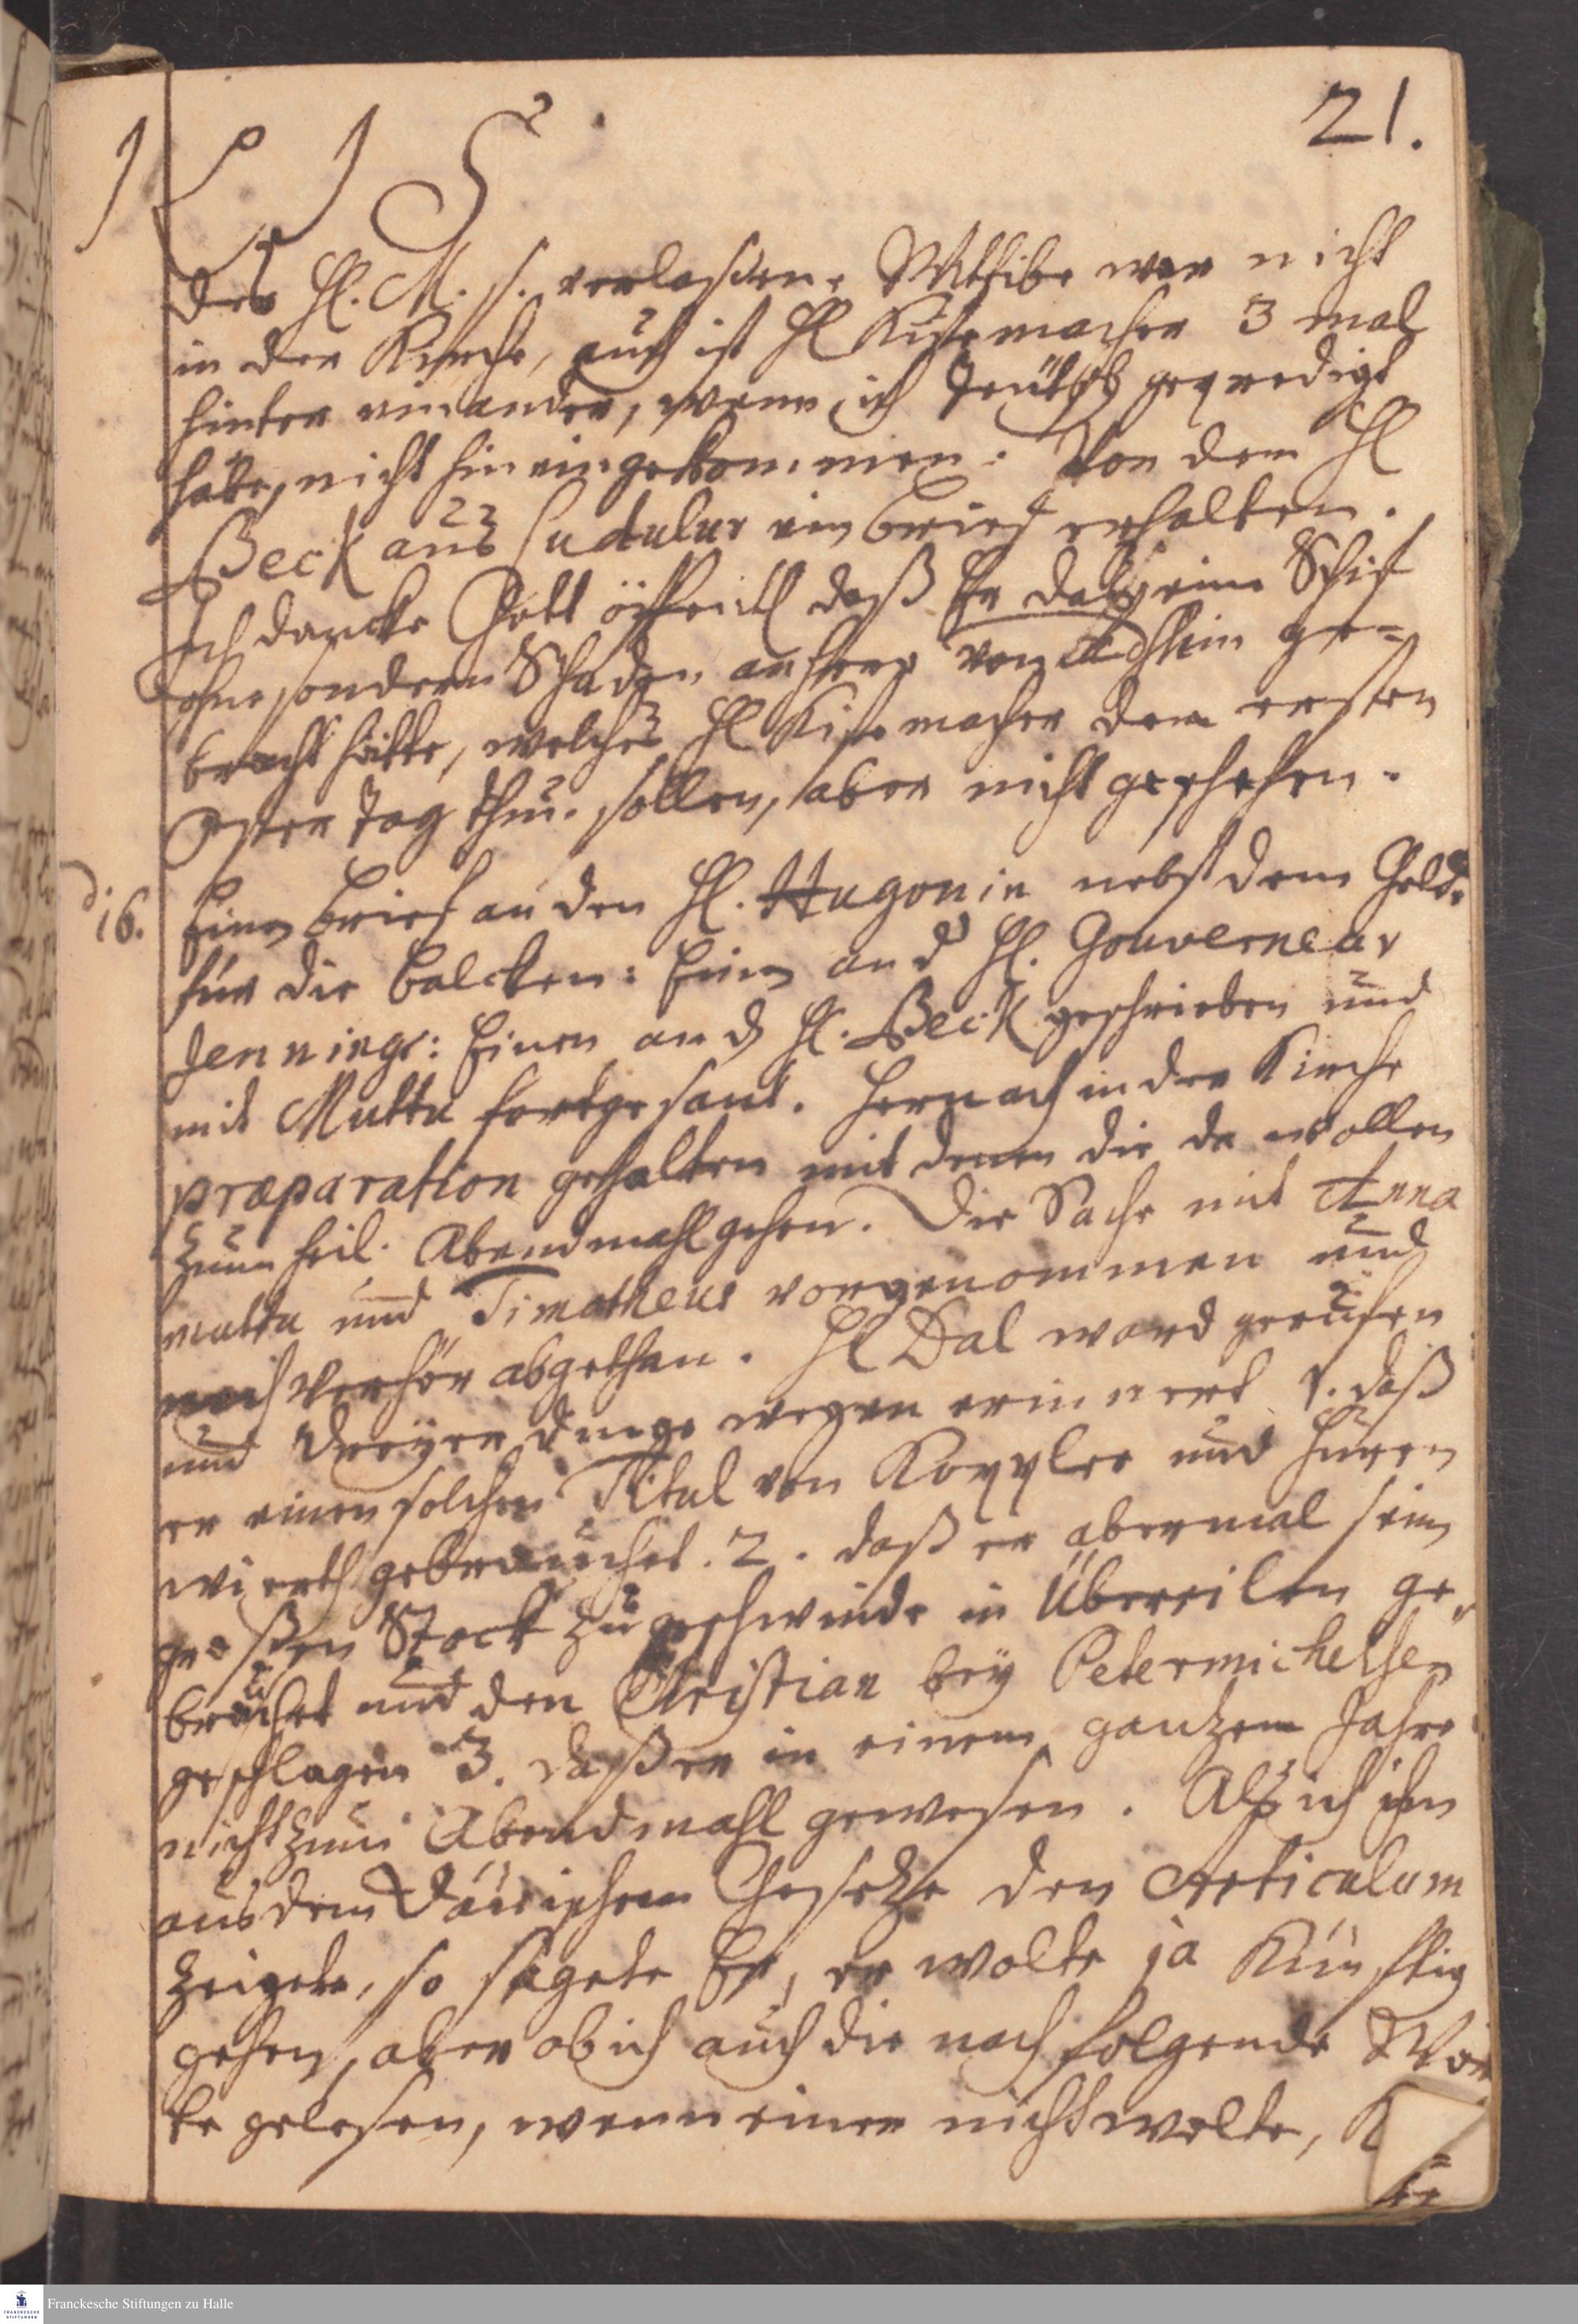 21.
Des H. M. s. verlaßene Wittibe war nicht
in der Kirche, auch ist H Kistemacher 3 mal
hinter einander, wenn ich Teutsch geprediget
habe, nicht hineingekommen. Von dem H
Beck aus Cudulur ein Brief erhalten.
Ich dancke Gott öffentl daß Er das eine Schif
ohne sondern Schaden anhero von Atchin ge=
bracht hätte, welches H Kistemacher den ersten
Ostertag thun sollen, aber nicht geschehen.
d 16. Einen Brief an den H. Hugonin nebst dem Gelde
für die Balcken: Einen an d H. Gouverneur
Jennings: Einen an d H. Beck geschrieben und
mit Muttu fortgesant. Hernach in der Kirche
præparation gehalten mit denen die da wollen
zum heil. Abendmahl gehen. Die Sache mit Anna
muttu und Timotheus vorgenommen und
nach Verhör abgethan. H Dal ward gerufen
und dreyer dinge wegen erinnert 1. daß
er einen solchen Titul von Koppler und Huren
wierth gebrauchet. 2. daß er abermal sein
großen Stock zu geschwinde in Übereilen ge,
brauchet und den Christian bey Petermichelsen
geschlagen 3. daß er in einem gantzem Jahre
nicht zum Abendmahl gewesen. Als ich ihm
aus dem Dänischen Gesetze den Articulum
zeigete, so sagete Er, er wolte ja künftig
gehen, aber ob ich auch die nachfolgende Wor
te gelesen, wenn einer nicht wolte,